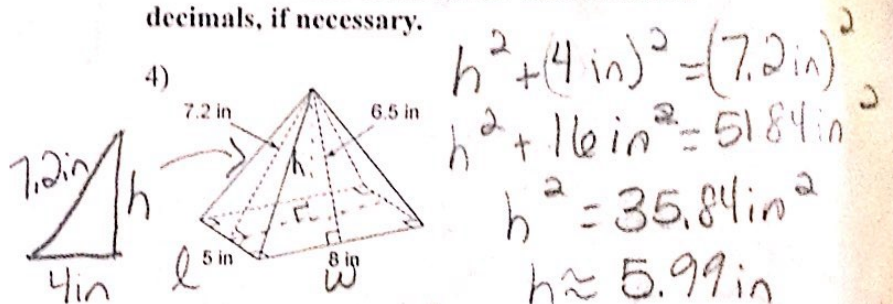 decimals, if necessary.
4)
7.2 in
6.5 in
h
5 in
8 in
l
w
7.2in
h
4in
h² + (4 in)² = (7.2 in)²
h² + 16 in² = 51.84 in²
h² = 35.84 in²
h ≈ 5.99 in